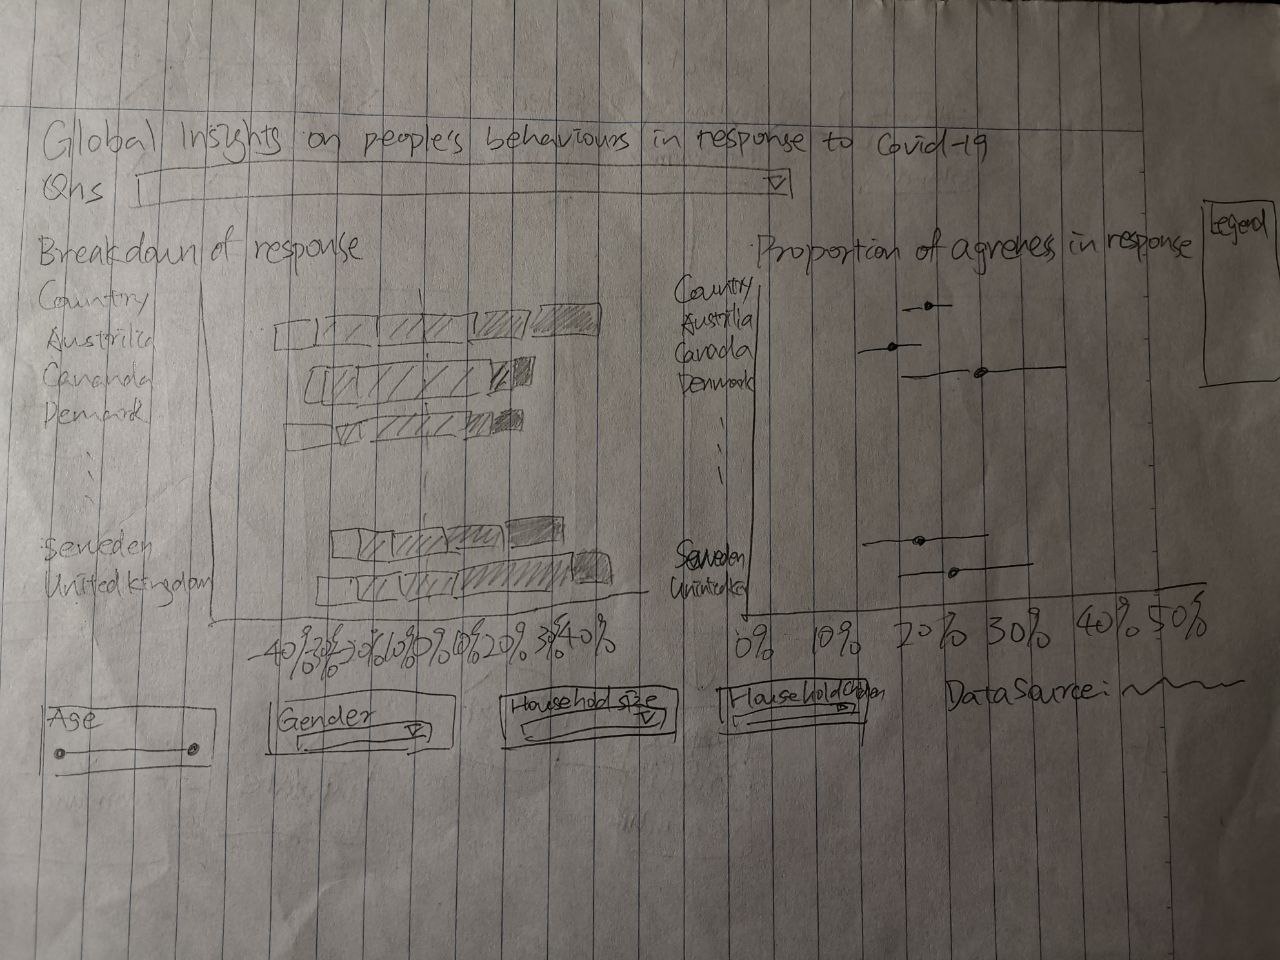 Global Insights on people's behaviours in response to Covid-19
Qns
Breakdown of response
Country
Austrilia
Cananda
Demark
Seweden
United kingdom
-40% 30% -20% 10% 0% 10% 20% 30% 40%
Proportion of agreness in response
Country
Austrilia
Canada
Denmark
Seweden
0% 10% 20% 30% 40% 50%
Legend
Age
Gender
Household size
Household
Data Source: